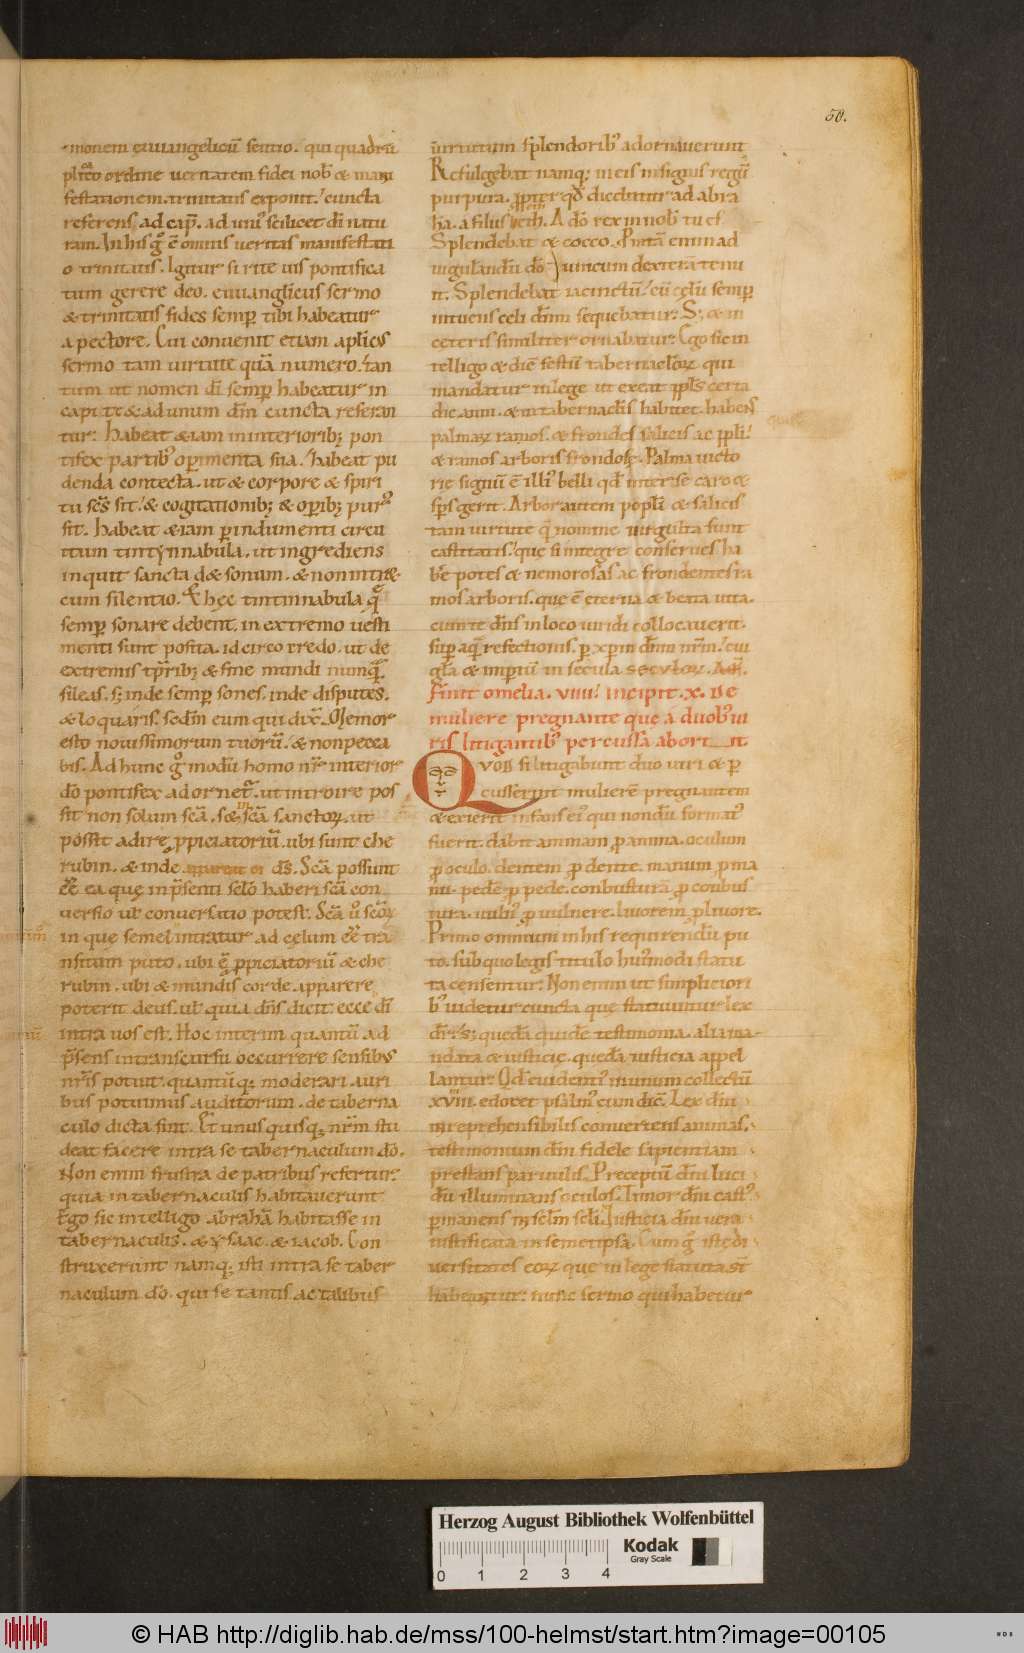 50.
monem euuangelicũ sentio. qui quadru
plico ordine ueritatem fidei nob' & mani
festationem trinitatis exponit. cuncta
referens ad cap̃. ad unũ scilicet dĩ natu
ram. In his g̊ ẽ omnis ueritas manifestati
o trinitatis. Igitur si rite uis pontifica
tum gerere deo. euuanglicus sermo
& trinitatis fides semp tibi habeatur
a pectore. Cui conuenit etiam aplicus
sermo tam uirtute quã numero. tan
tum ut nomen dĩ semp habeatur in
capite & ad unum dm̃ cuncta referan
tur. habeat & iam in interiorib; pon
tifex partib' opimenta sua. habeat pu
denda contecta. ut & corpore & spiri
tu scs̃ sit. & cogitationib; & opib; pur'
sit. habeat & iam p indumenti circu
itum tintynnabula. ut ingrediens
inquit sancta d& sonum. & non intr&
cum silentio. Et hęc tintinnabula q̃
semp sonare debent. in extremo uesti
menti sunt posita. id circo credo. ut de
extremis tp̃rib; & fine mundi nunq̃
sileas. s; inde semp sones. inde disputes.
& loquaris. sedm̃ eum qui dix̃. Memor
esto nouissimorum tuorũ. & non pecca
bis. Ad hunc g̊ modũ homo nr̃ interior
dõ pontifex adornet̃. ut introire pos
sit non solum scã. s& scã sanctoꝝ. ut
possit adire ꝓpiciatoriũ. ubi sunt che
rubin. & inde appareat ei ds̃. Scã possunt
ẽẽ ea quę in p̃senti sclõ haberi scã con
uersio ut conuersatio potest. Scã ů scõꝝ
in quę semel intratur ad cęlum ẽẽ tra
nsitum puto. ubi ę ꝓpiciatoriũ & che
rubin. ubi & mundis corde apparere
poterit deus. ut quia dñs dicit ecce dĩ
intra uos est. Hoc interim quantũ ad
p̃sens in transcursu occurrere sensib;
nr̃is potuit. quantũq; moderari. auri
bus potuimus auditorum. de taberna
culo dicta sint. Et unus quisq; nr̃m stu
deat facere intra se tabernaculum dõ.
Non enim frustra de patribus refertur
quia in tabernaculis habitauerunt
Ego sic intelligo abrahã habitasse in
tabernaculis. & ysaac. & iacob. Con
struxerunt namq; isti intra se taber
naculum dõ. qui se tantis ac talibus
uirtutum splendorib' adornauerunt
Refulgebat namq; in eis insignis regũ
purpura. ꝓpter qđ dicebatur ad abra
hã. a filius heth. A dõ rex in nob' tu es
Splendebat & cocco. Pmtã enim ad
iugulandũ dõ unicum dexterã tenu
it. Splendebat iacinctũ. cũ cęlũ semp
intuens celi dñm sequebatur. S; & in
ceteris similiter ornabatur. Ego sic in
telligo & diẽ festũ tabernacloꝝ. qui
mandatur in lege ut exeat ppls̃ certa
die anni. & in tabernaclis habitet. habens
palmaꝝ ramos. & frondes salicis ac ppli.
& ramos arboris frondosę. Palma uicto
rię signũ ẽ illi' belli qđ inter se caro &
sps̃ gerit. Arbor autem popli & salicis
tam uirtute q̃ nomine uirgulta sunt
castitatis. que si integre conserues ha
bẽ potes & nemorosas ac frondentes ra
mos arboris. que ẽ eterna & beata uita.
cum te dñs in loco uiridi collocauerit.
sup aquã refectionis. p xpm dñm nr̃m. cui
glã & imperiũ in secula seculoꝝ. Am̃.
Finit omelia. viiii. incipit. x. De
muliere pregnante que a duob' ui
ris litigantib' percussa abortit.
Quod si litigabunt duo uiri & p
cusserint mulierẽ pregnantem
& exierit infans ei' qui nondũ format'
fuerit. dabit animam ꝓ anima. oculum
ꝓ oculo. dentem ꝓ dente. manum ꝓ ma
nu. pedẽ ꝓ pede. conbusturã ꝓ conbus
tura. uuln' ꝓ uulnere. liuorem ꝓ liuore.
Primo omnium in his requirendũ pu
to. sub quo legis titulo hui'modi statu
ta censentur. Non enim ut simpliciori
b' uidetur cuncta que statuuntur lex
dr̃. s; quedã quidẽ testimonia. alia ma
ndata & iusticię. quedã iusticia appel
lantur. Qđ euidentiĩ in unum collectũ
xviii. edocet psalm' cum dic̃. Lex dñi
inreprehensibilis conuertens animas.
testimonium dñi fidele sapientiam
prestans paruulis. Preceptũ dñi luci
dũ illuminans oculos. Timor dñi cast'
pmanens in sclm̃ scli. Iusticia dñi uera
iustificata in semetipsã. Cum g̊ istę di
uersitates eoꝝ que in lege statuta st̃
habeantur. nunc sermo qui habetur
Herzog August Bibliothek Wolfenbüttel
Kodak
Gray Scale
0 1 2 3 4
© HAB http://diglib.hab.de/mss/100-helmst/start.htm?image=00105